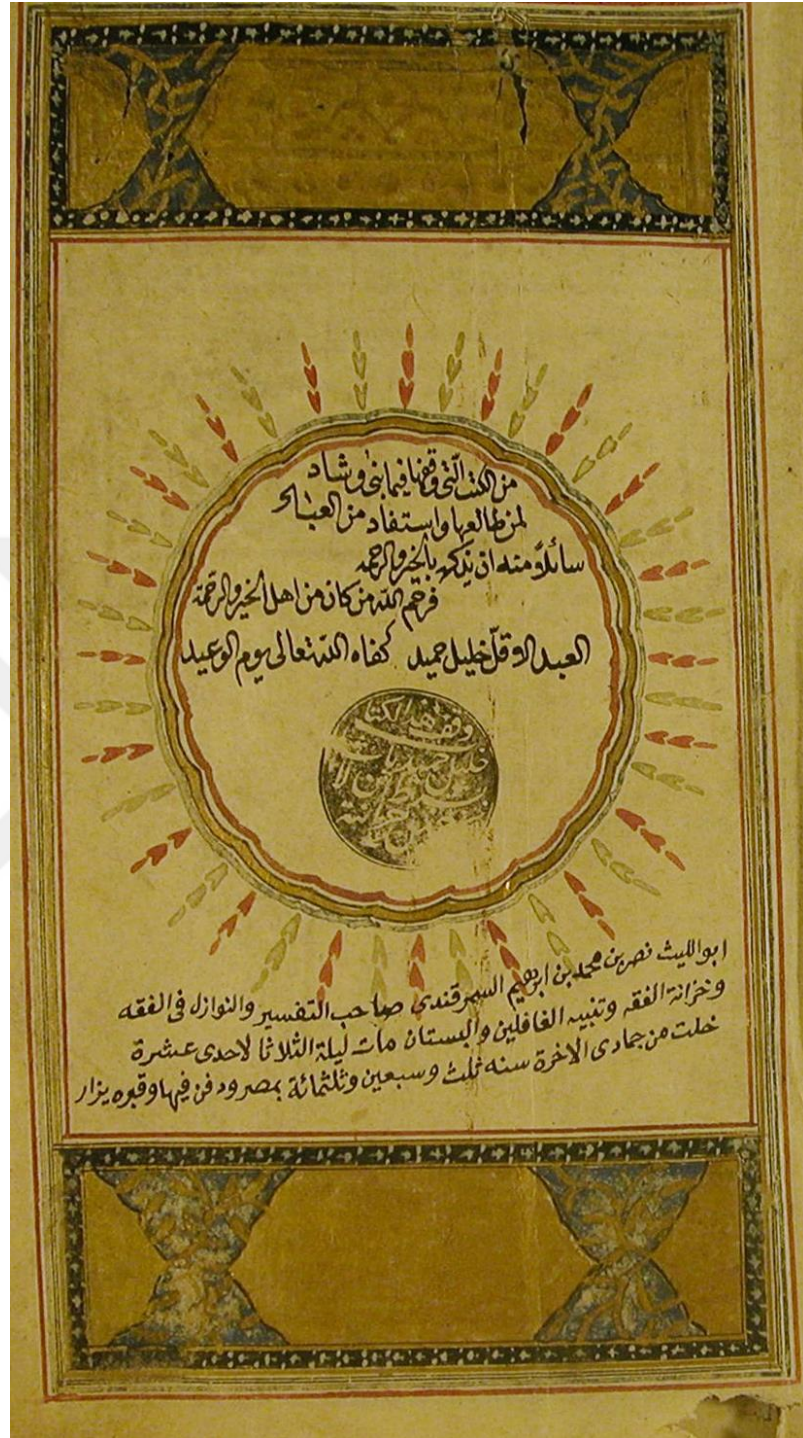 من الكتب الّتي وقفها فيما بنى وشاد
لمن طالعها واستفاد من العباد
سائلاً منه ان يذكره بالخير والرحمه
فرحم الله من كان من اهل الخير والرحمة
العبد الاقلّ خليل حميد كفاه الله تعالى يوم الوعيد
وقف هذا
خليل حميد
ابو الليث نصر بن محمد بن ابرهيم السمرقندي صاحب التفسير والنوازل فى الفقه
وخزانة الفقه وتنبيه الغافلين والبستان مات ليلة الثلاثا لاحدى عشرة
خلت من جمادى الاخرة سنه ثلث وسبعين وثلثمائة بمصر ودفن فيها وقبره يزار